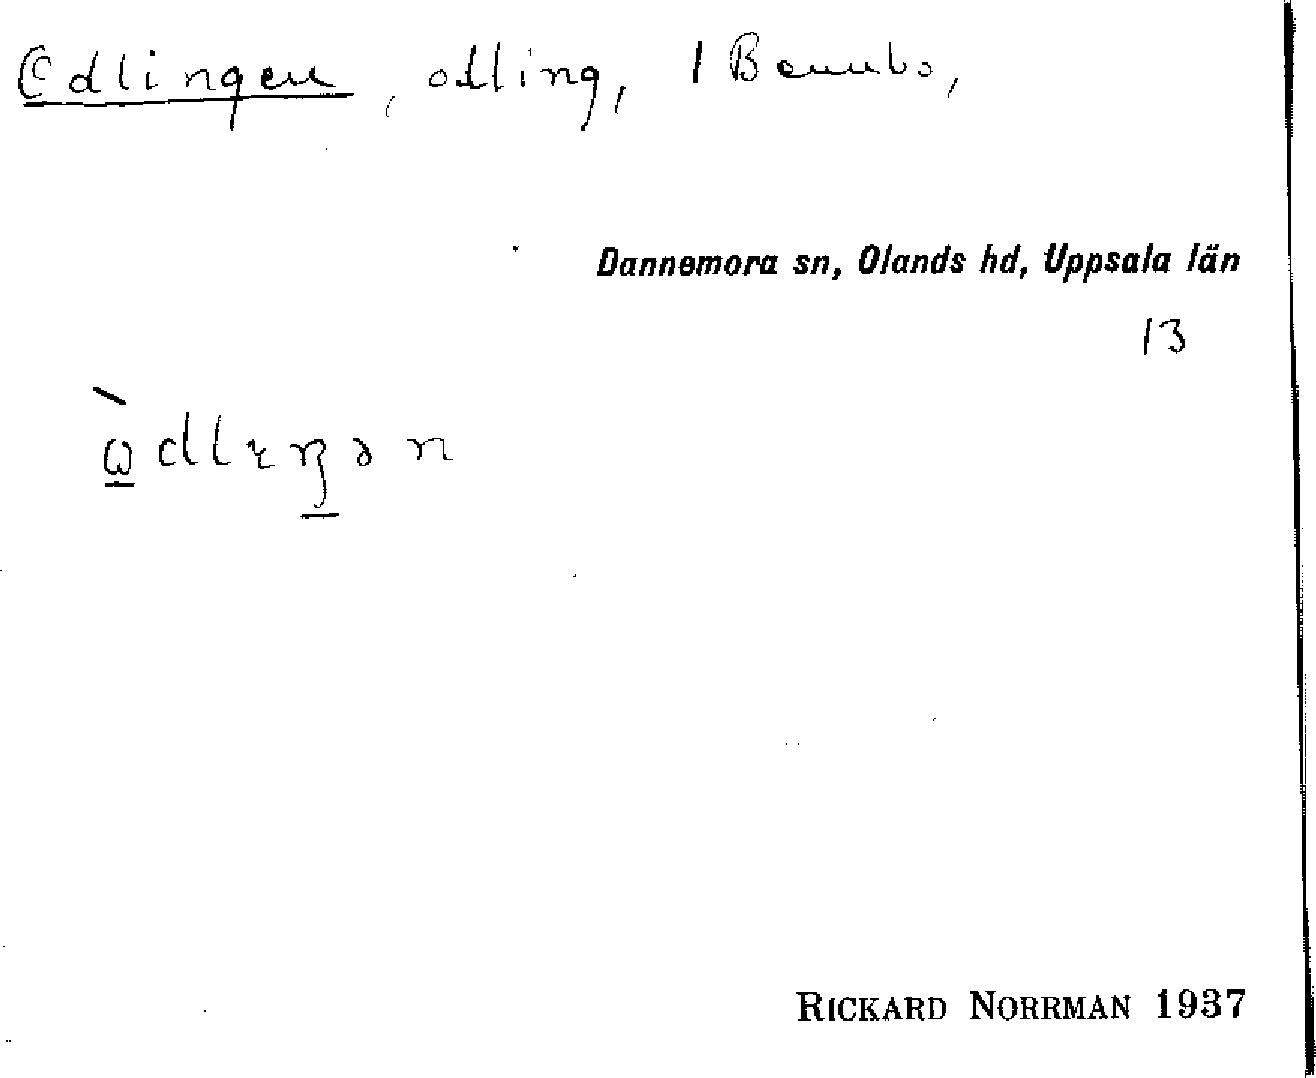 Odlingen, odling, 1 Bennbo,
Dannemora sn, Olands hd, Uppsala län
13
RICKARD NORRMAN 1937